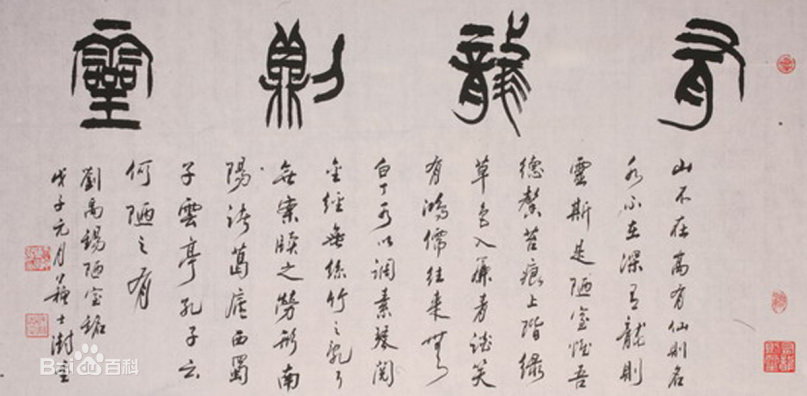 有龍則靈
山不在高有仙則名
水不在深有龍則
靈斯是陋室惟吾
德馨苔痕上階綠
草色入簾青談笑
有鴻儒往來無
白丁可以調素琴閱
金經無絲竹之亂耳
無案牘之勞形南
陽諸葛廬西蜀
子雲亭孔子云
何陋之有
劉禹錫陋室銘
戊子元月蘇士澍書
Bai百科